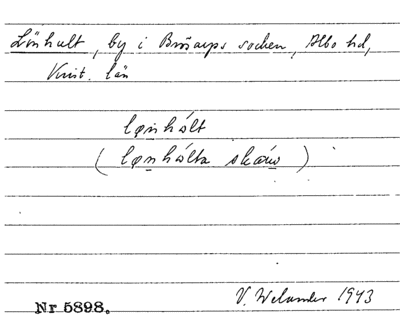 Lönhult, by i Brösarps socken, Albo hd,
Krist. län
lønhålt
( lønhålta skáw )
V. Welander 1943
Nr 5898.